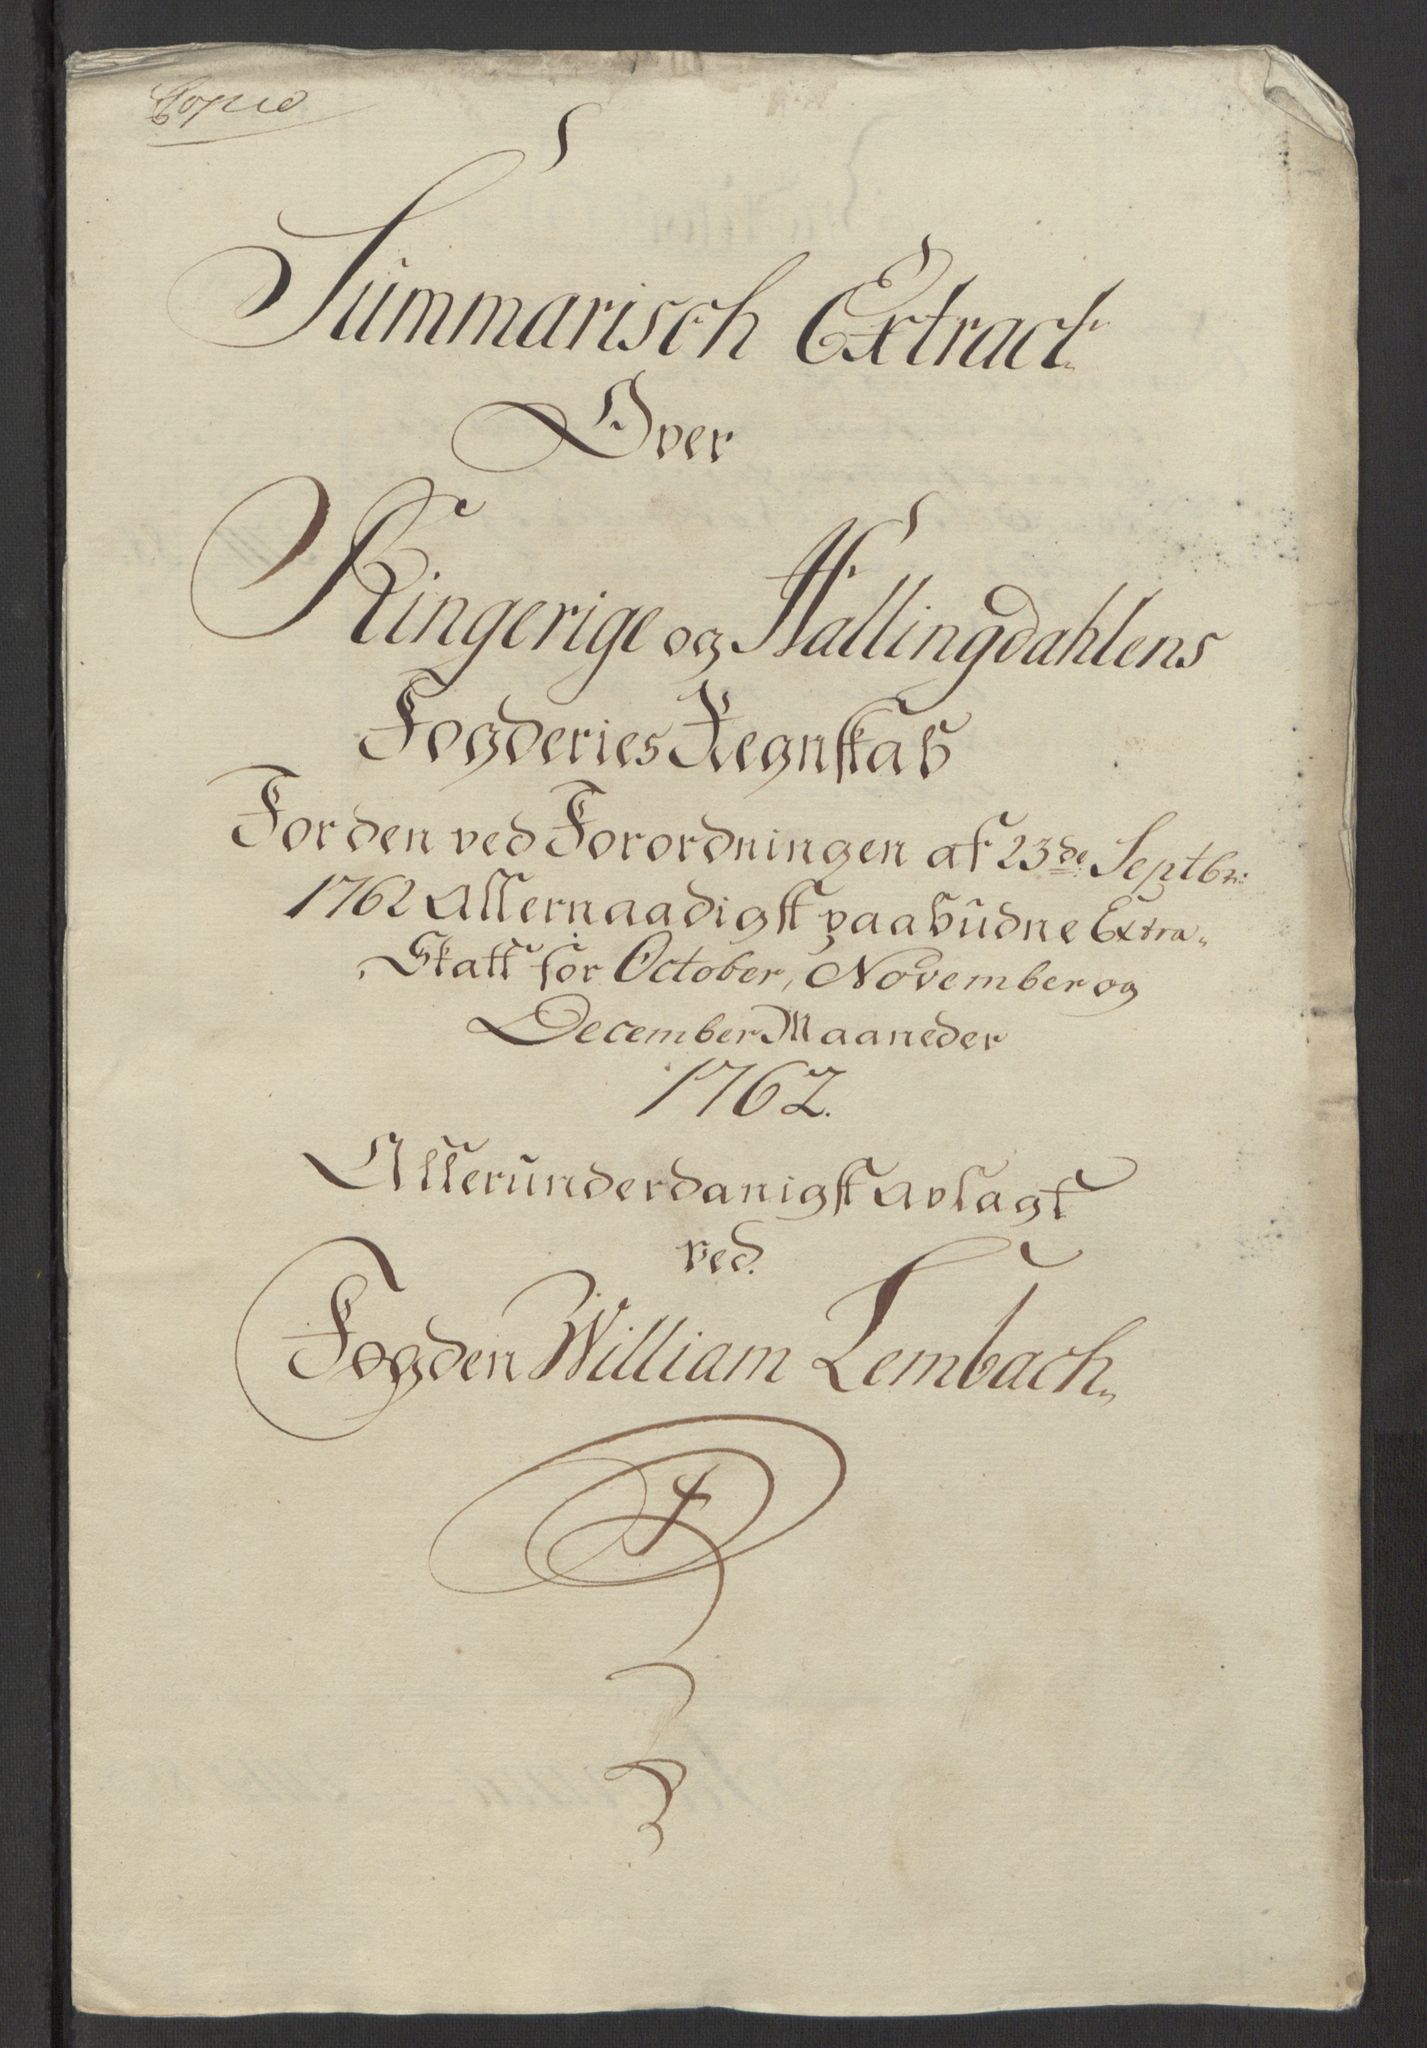 Copie
Summarisch Extract
Over
Ringerige og Hallingdahlens
Fogderies Regnskab
For den ved Forordningen af 23de Septbr:
1762 Allernaadigst paabudne Extra-
Skatt for October, November og
December Maaneder
1762.
Allerunderdanigst avlagt
ved.
Fogden William Lembach